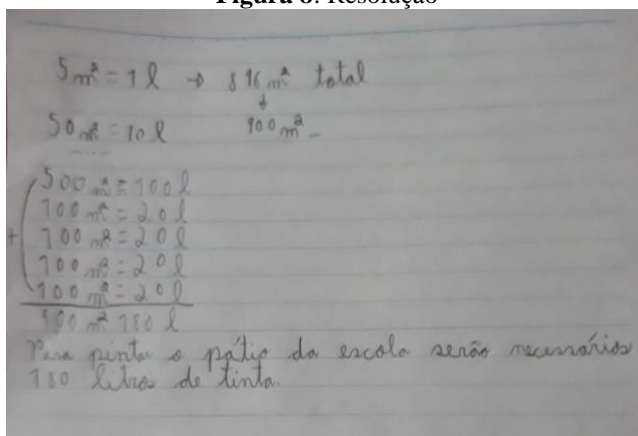 Figura 8: Resolução
5 m² = 1 l → 896 m² total
↓
50 m² = 10 l 900 m²
500 m² = 100 l
100 m² = 20 l
+ 100 m² = 20 l
100 m² = 20 l
100 m² = 20 l
900 m² 180 l
Para pintar o pátio da escola serão necessários
180 litros de tinta.